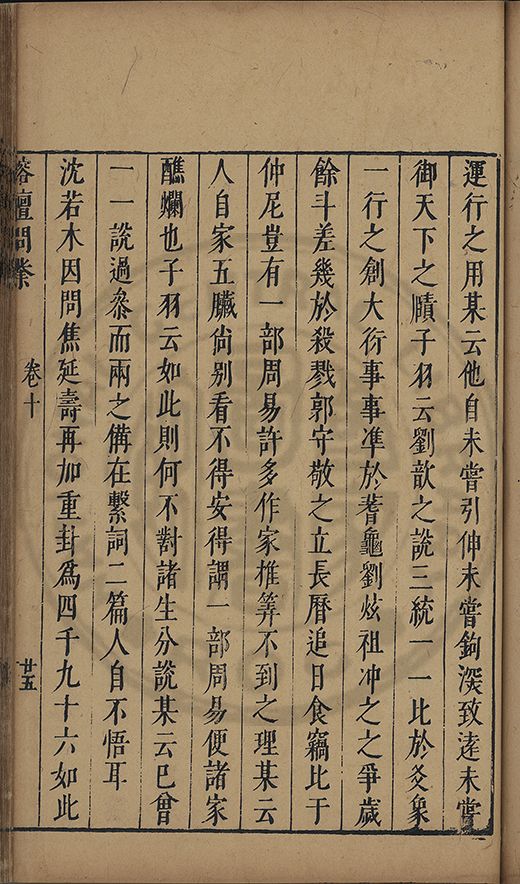 運行之用某云他自未嘗引伸未嘗鉤深致遠未嘗
御天下之賾子羽云劉歆之說三統一一比於爻象
一行之創大衍事事準於蓍龜劉炫祖冲之之爭歲
餘斗差幾於殺戮郭守敬之立長曆追日食竊比于
仲尼豈有一部周易許多作家推筭不到之理某云
人自家五臟尙別看不得安得謂一部周易便諸家
醮爛也子羽云如此則何不對諸生分說某云已曾
一一說過叅而兩之備在繫詞二篇人自不悟耳
沈若木因問焦延壽再加重卦爲四千九十六如此
榕壇問業
卷十
廿五